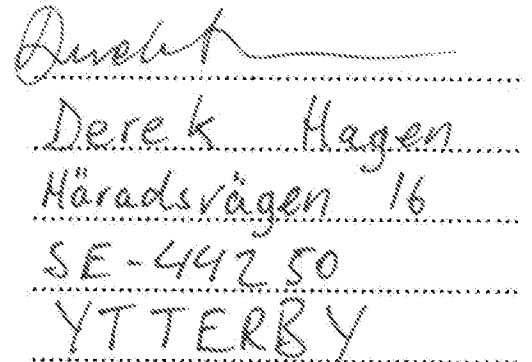 Derek Hagen
Häradsvägen 16
SE-44250
YTTERBY